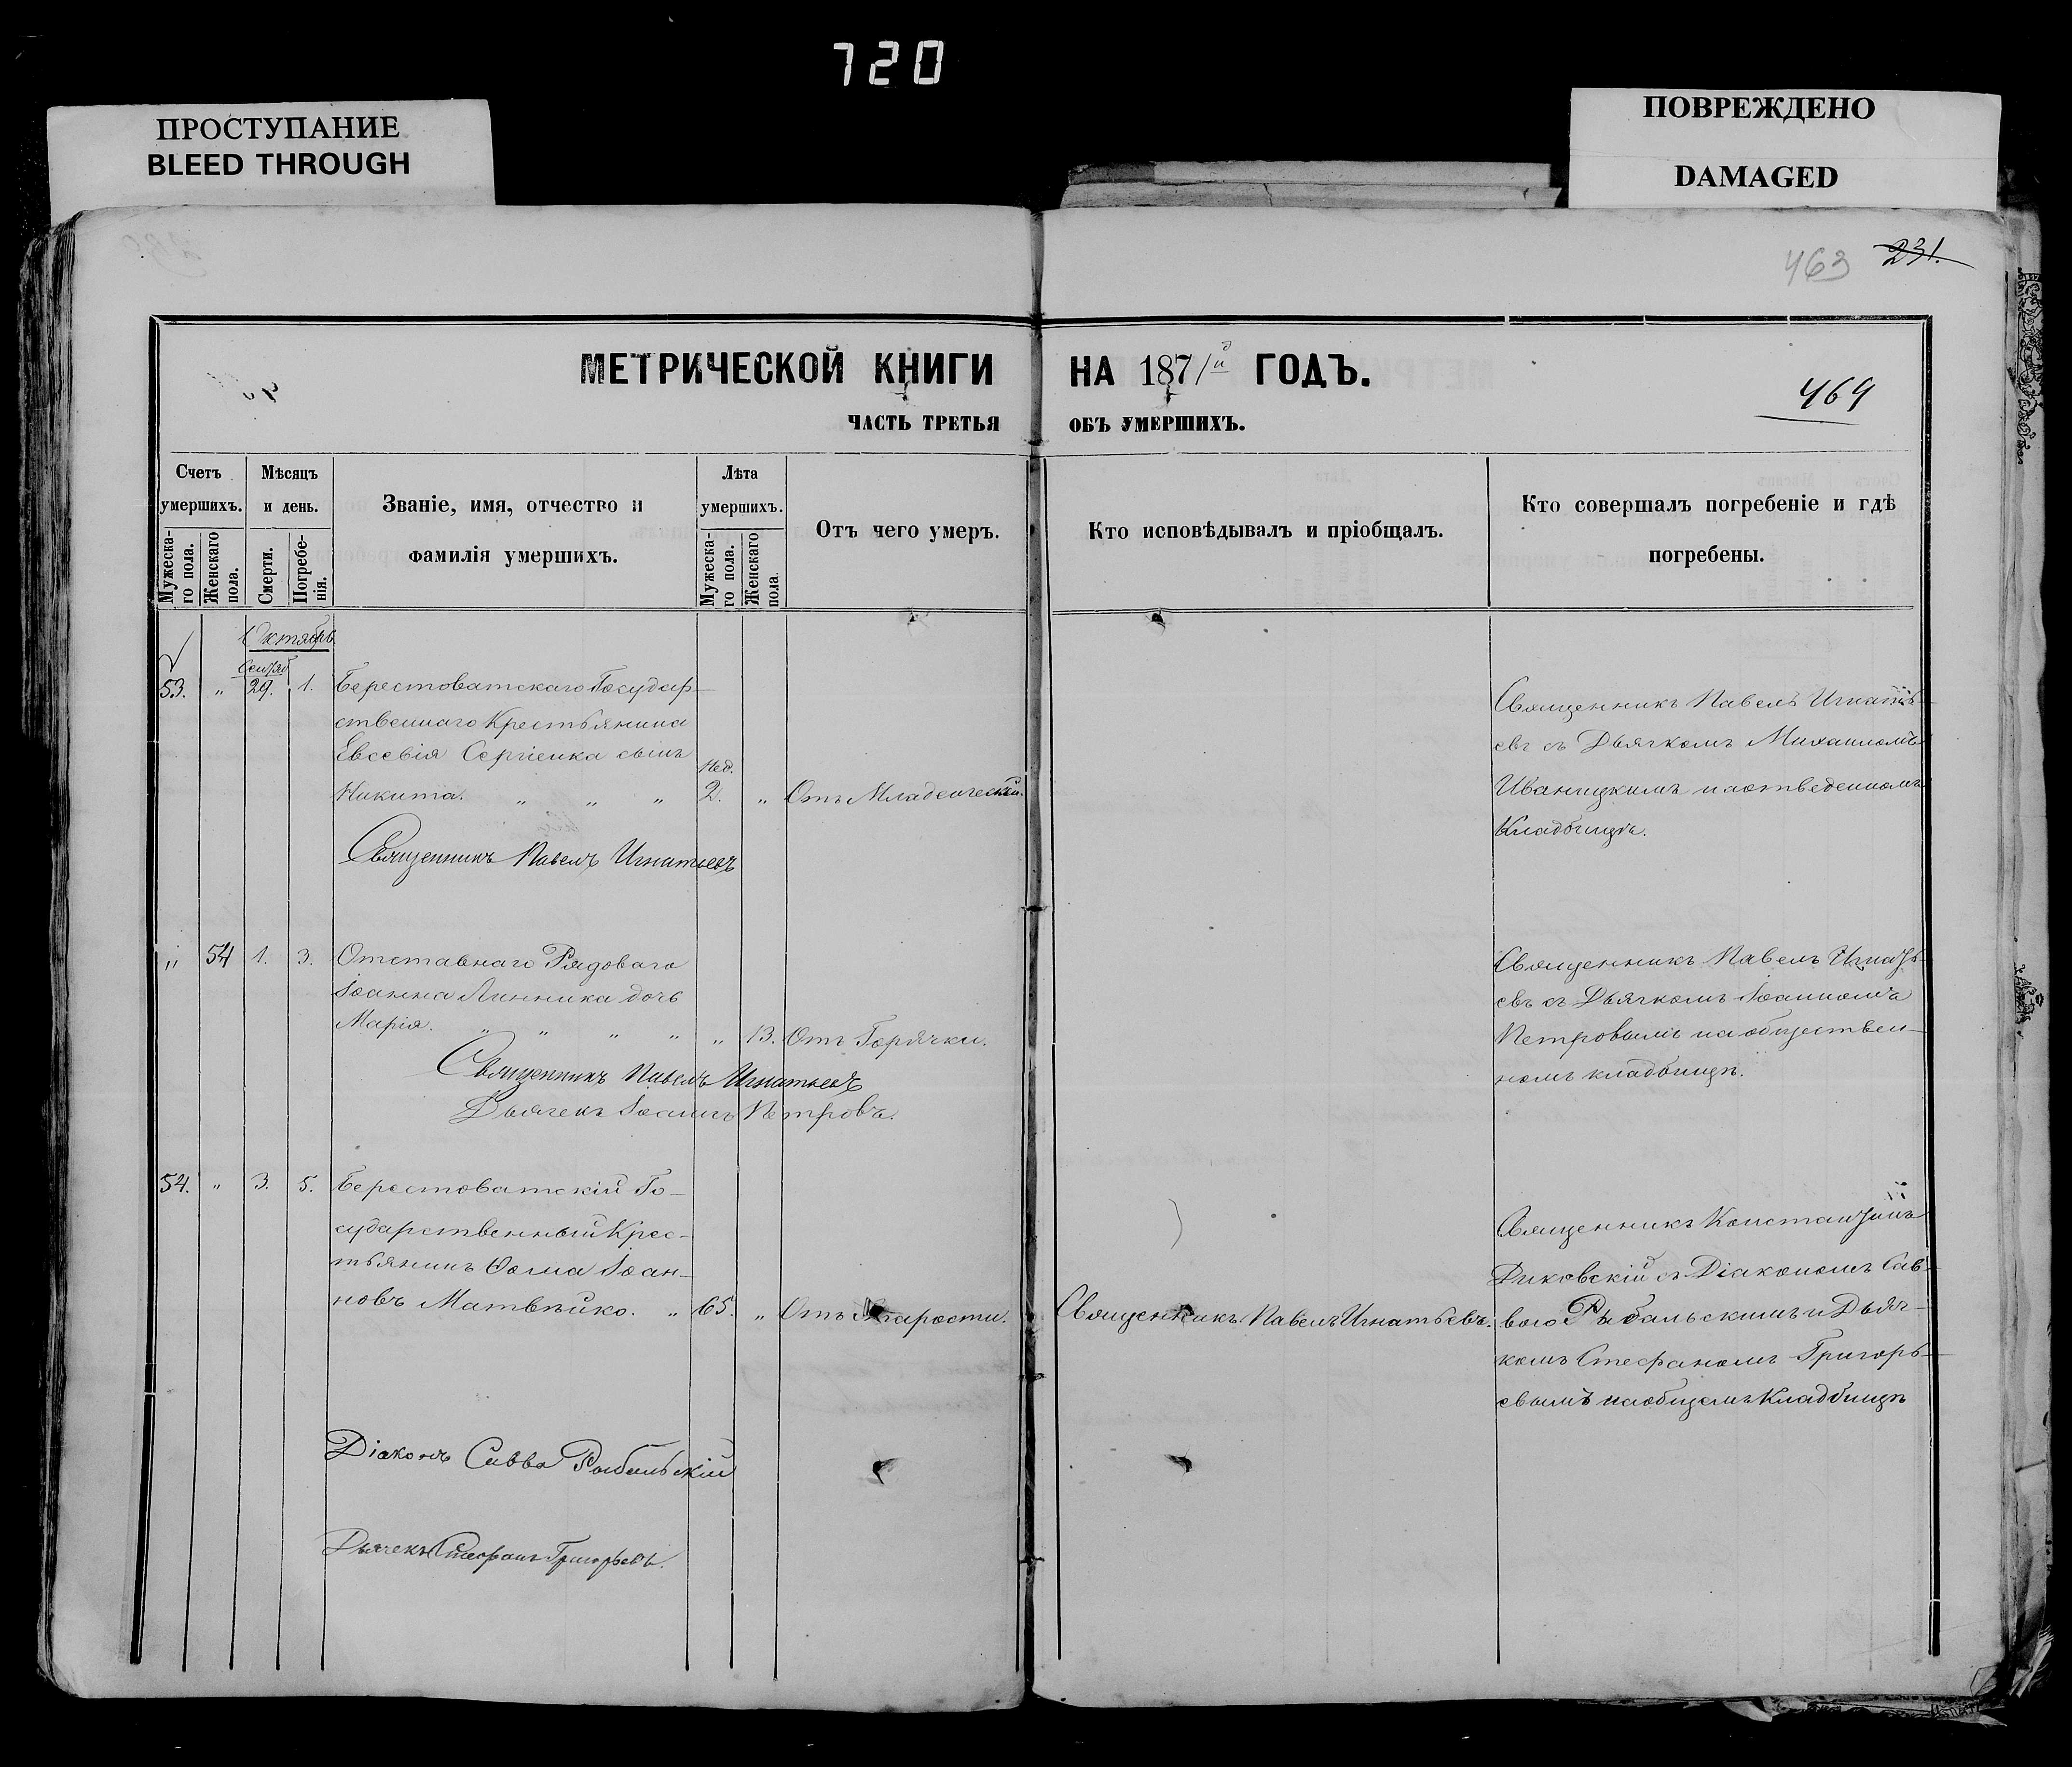 720
ПРОСТУПАНИЕ
BLEED THROUGH
ПОВРЕЖДЕНО
DAMAGED
463 231.
МЕТРИЧЕСКОЙ КНИГИ НА 1871й ГОДЪ.
469
ЧАСТЬ ТРЕТЬЯ ОБЪ УМЕРШИХЪ.
Счетъ умершихъ.
Мужеска-го пола.
Женскаго пола.
Мѣсяцъ и день.
Смерти.
Погребе-нія.
Званіе, имя, отчество и
фамилія умершихъ.
Лѣта умершихъ.
Мужеска-го пола.
Женскаго пола.
Отъ чего умеръ.
Кто исповѣдывалъ и пріобщалъ.
Кто совершалъ погребеніе и гдѣ
погребены.
Октябрь
Сентяб
53. " 29. 1. Берестоватскаго Государ-
ственнаго Крестьянина
Евсевія Сергіенка сынъ
Нед.
Никита. " " " 2. " Отъ Младенческой.
Священникъ Павелъ Игнатьевъ
Священникъ Павелъ Игнать-
евъ съ Дьячкомъ Михаиломъ
Иваницкимъ на отведенномъ
Кладбищѣ.
" 54 1. 3. Отставнаго Рядоваго
Іоанна Линника дочь
Марія. " " " " " 13. Отъ Горячки.
Священникъ Павелъ Игнатьевъ
Дьячекъ Іоаннъ Петровъ.
Священникъ Павелъ Игнать-
евъ съ Дьячкомъ Іоанномъ
Петровымъ на обществен-
номъ кладбищѣ.
54. " 3. 5. Берестоватскій Го-
сударственный Крес-
тьянинъ Ѳома Іоан-
новъ Матвѣйко. " 65. " Отъ Старости. Священникъ Павелъ Игнатьевъ.
Священникъ Константинъ
Диковскій съ Діакономъ Сав-
вою Рыбальскимъ и Дьяч-
комъ Стефаномъ Григорь-
евымъ на общемъ Кладбищѣ
Діаконъ Савва Рыбальскій
Дьячекъ Стефанъ Григорьевъ.